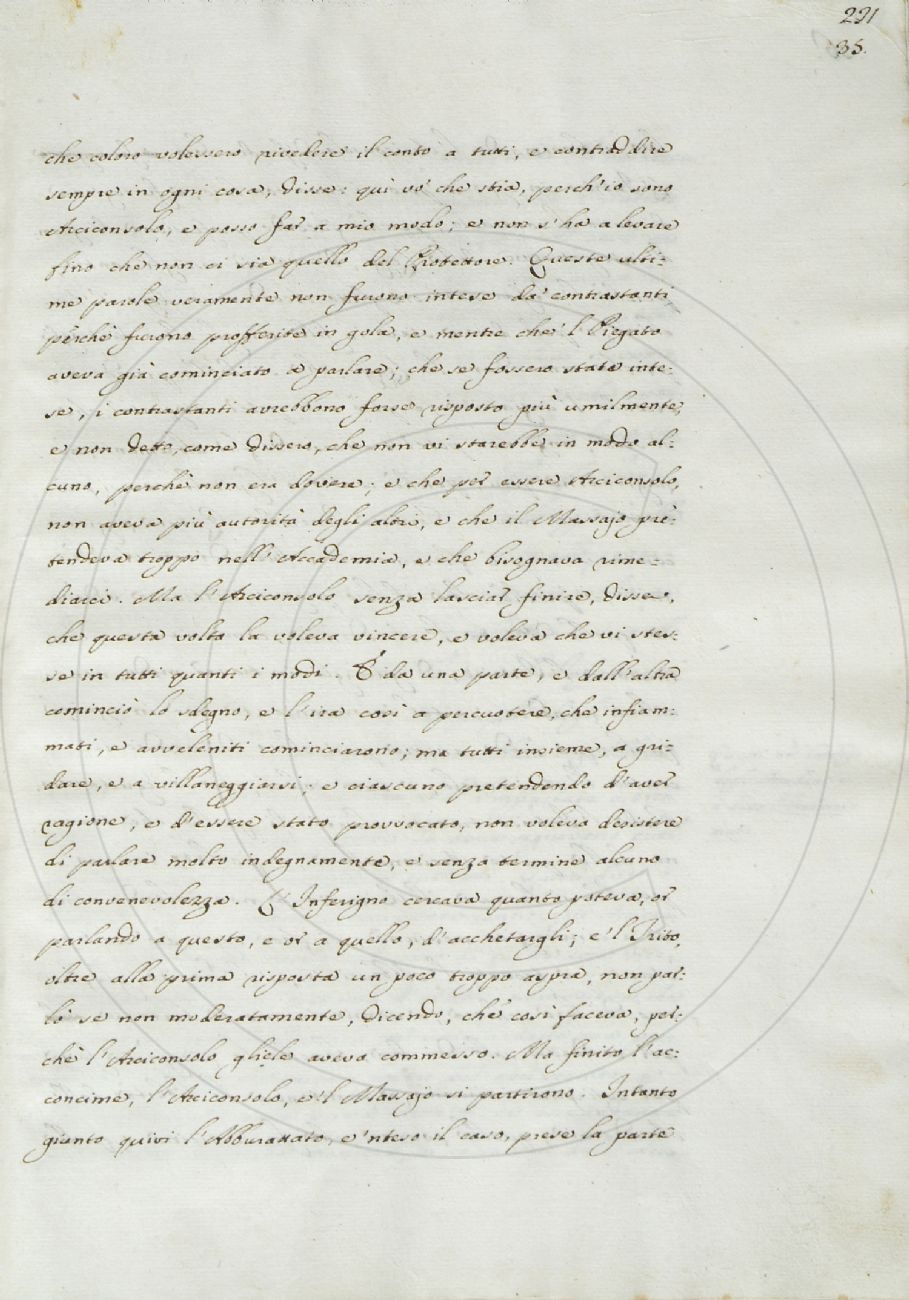 291
35.
che coloro volessero rivedere il conto a tutti, e contraddire
sempre in ogni cosa, disse: quì vo' che stia, perch'io sono
Arciconsolo, e posso far a mio modo; e non s'ha a levare
fino che non ci sia quello del Protettore. Queste ulti=
me parole veramente non furono intese da' contrastanti
perchè furono profferite in gola, e mentre che 'l Piegato
aveva già cominciato a parlare; che se fossero state inte=
se, i contrastanti avrebbono forse risposto più umilmente;
e non detto, come dissero, che non vi starebbe in modo al=
cuno, perchè non era dovere; e che per essere Arciconsolo,
non aveva più autorità degli altri, e che il Massajo pre=
tendeva troppo nell'Accademia, e che bisognava rime=
diarci. Ma l'Arciconsolo senza lasciar finire, disse,
che questa volta la voleva vincere, e voleva che vi stes=
se in tutti quanti i modi. E da una parte, e dall'altra
cominciò lo sdegno, e l'ira così a percuotere, che infiam=
mati, e avveleniti cominciarono; ma tutti insieme, a gri=
dare, e a villaneggiarsi; e ciascuno pretendendo d'aver
ragione, e d'essere stato provvocato, non voleva desistere
di parlare molto indegnamente, e senza termine alcuno
di convenevolezza. L'Inferigno cercava quanto poteva, or
parlando a questo, e or a quello, d'acchetargli; e 'l Trito,
oltre alla prima risposta un poco troppo aspra, non par=
lò se non moderatamente, dicendo, che così faceva, per=
chè l'Arciconsolo gliele aveva commesso. Ma finito l'ac=
concime, l'Arciconsolo, e 'l Massajo si partirono. Intanto
giunto quivi l'Abburattato, e 'nteso il caso, prese la parte